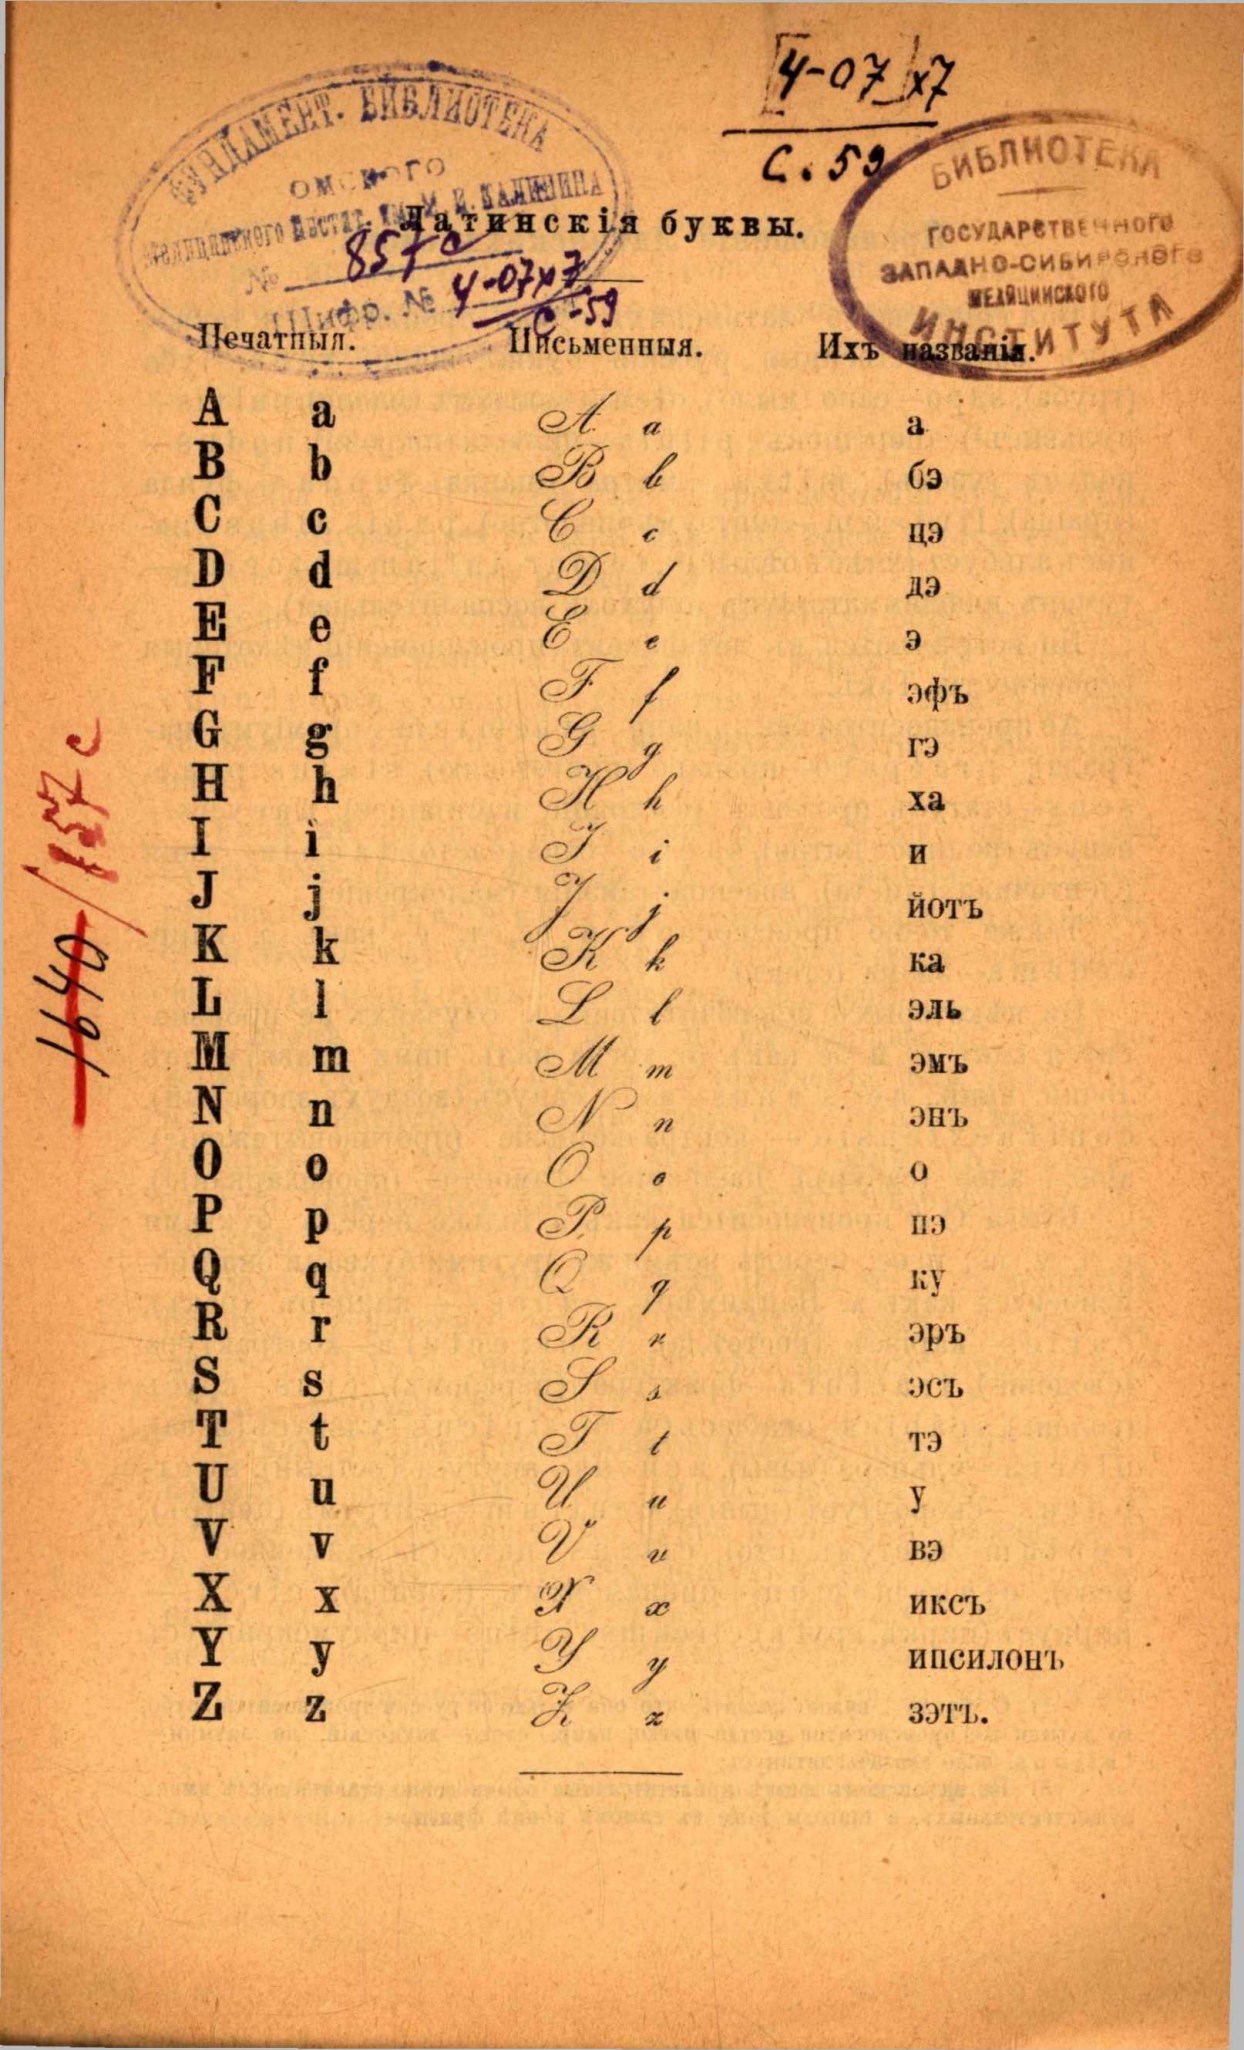 [4-07]х7
С. 59
ФУНДАМЕНТ. БИБЛИОТЕКА
ОМСКОГО
МЕДИЦИНСКОГО ИНСТИТ. им. М. И. КАЛИНИНА
№ 857с
Шифр. № 4-07х7
С-59
БИБЛИОТЕКА
ГОСУДАРСТВЕННОГО
ЗАПАДНО-СИБИРСКОГО
МЕДИЦИНСКОГО
ИНСТИТУТА
Латинскія буквы.
Печатныя. Письменныя. Ихъ названія.
A a A a а
B b B b бэ
C c C c цэ
D d D d дэ
E e E e э
F f F f эфъ
G g G g гэ
H h H h ха
I i I i и
J j J j йотъ
K k K k ка
L l L l эль
M m M m эмъ
N n N n энъ
O o O o о
P p P p пэ
Q q Q q ку
R r R r эръ
S s S s эсъ
T t T t тэ
U u U u у
V v V v вэ
X x X x иксъ
Y y Y y ипсилонъ
Z z Z z зэтъ.
1640